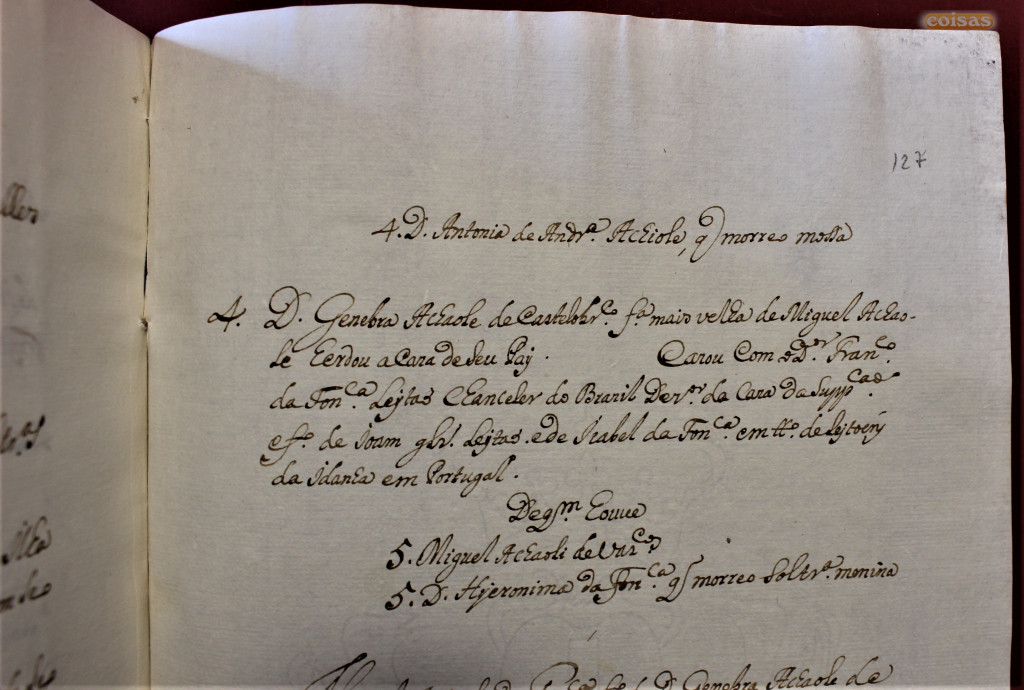 coisas
127
4. D. Antonia de Andr.ª Achiole, q̃ morreo mossa
4. D. Genebra Achaole de Castelobr.co f.ª mais velha de Miguel Achao-
le herdou a Caza de Seu Pay. Cazou Com o D.or Fran.co
da Fon.ca Leytas Chanceler do Brazil Dez.or da Caza da Supp.cao
e f.o de Joam glz. Leytas. e de Izabel da Fon.ca em tt.o de
da Idanha em Portugal.
De q.m houue
5. Miguel Achaoli de Vas.cos
5. D. Hyeronima da Fon.ca q̃ morreo Soltr.ª menina
D. Genebra Achaole de